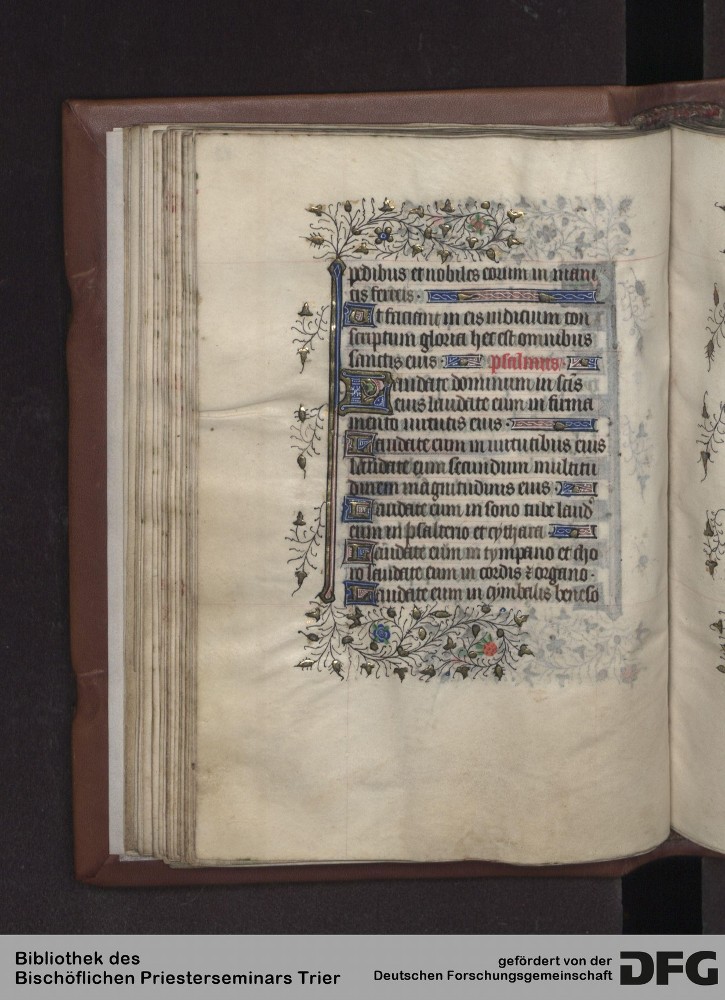 pedibus et nobiles eorum in mani
cis ferreis.
Ut faciant in eis iudicium con
scriptum gloria hec est omnibus
sanctis eius. psalmus.
Laudate dominum in scis
eius laudate eum in firma
mento uirtutis eius.
Laudate eum in uirtutibus eius
laudate eum secundum multitu
dinem magnitudinis eius
Laudate eum in sono tube laud
eum in psalterio et cythara
Laudate eum in tympano et cho
ro laudate eum in cordis ⁊ organo.
Laudate eum in cymbalis beneso
Bibliothek des
Bischöflichen Priesterseminars Trier
gefördert von der
Deutschen Forschungsgemeinschaft
DFG